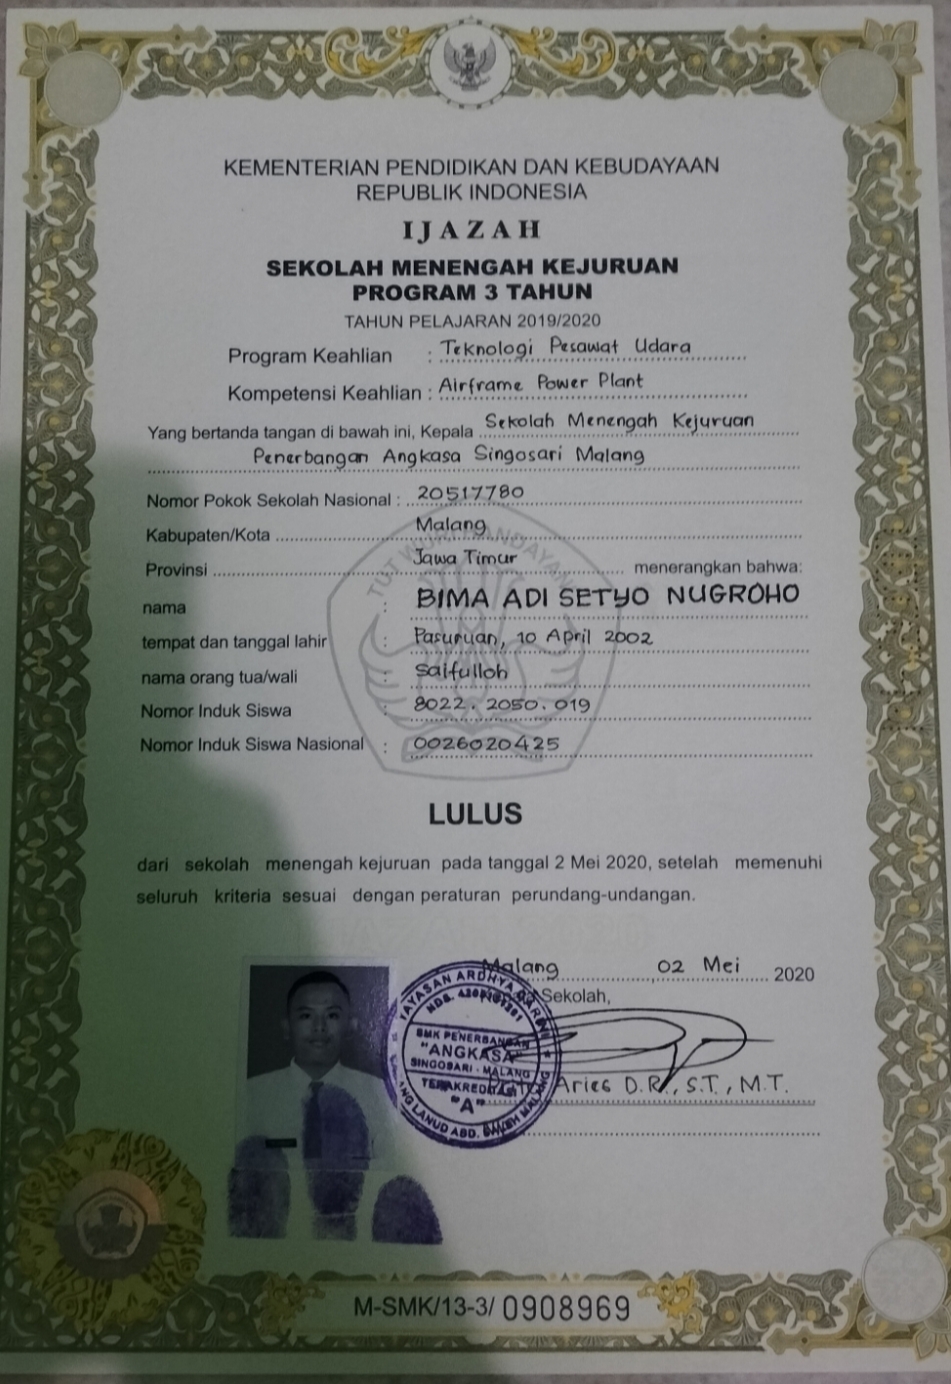 KEMENTERIAN PENDIDIKAN DAN KEBUDAYAAN
REPUBLIK INDONESIA
IJAZAH
SEKOLAH MENENGAH KEJURUAN
PROGRAM 3 TAHUN
TAHUN PELAJARAN 2019/2020
Program Keahlian : Teknologi Pesawat Udara
Kompetensi Keahlian : Airframe Power Plant
Yang bertanda tangan di bawah ini, Kepala Sekolah Menengah Kejuruan
Penerbangan Angkasa Singosari Malang
Nomor Pokok Sekolah Nasional : 20517780
Kabupaten/Kota Malang
Provinsi Jawa Timur menerangkan bahwa:
nama : BIMA ADI SETYO NUGROHO
tempat dan tanggal lahir : Pasuruan, 10 April 2002
nama orang tua/wali : Saifulloh
Nomor Induk Siswa : 8022.2050.019
Nomor Induk Siswa Nasional : 0026020425
TUT WURI HANDAYANI
LULUS
dari sekolah menengah kejuruan pada tanggal 2 Mei 2020, setelah memenuhi
seluruh kriteria sesuai dengan peraturan perundang-undangan.
Malang, 02 Mei 2020
Sekolah,
YAYASAN ARDHYA
SMK PENERBANGAN
"ANGKASA"
SINGOSARI - MALANG
TERAKREDITASI
"A"
LANUD ABD. SALEH MALANG
Aries D.R., S.T., M.T.
M-SMK/13-3/ 0908969